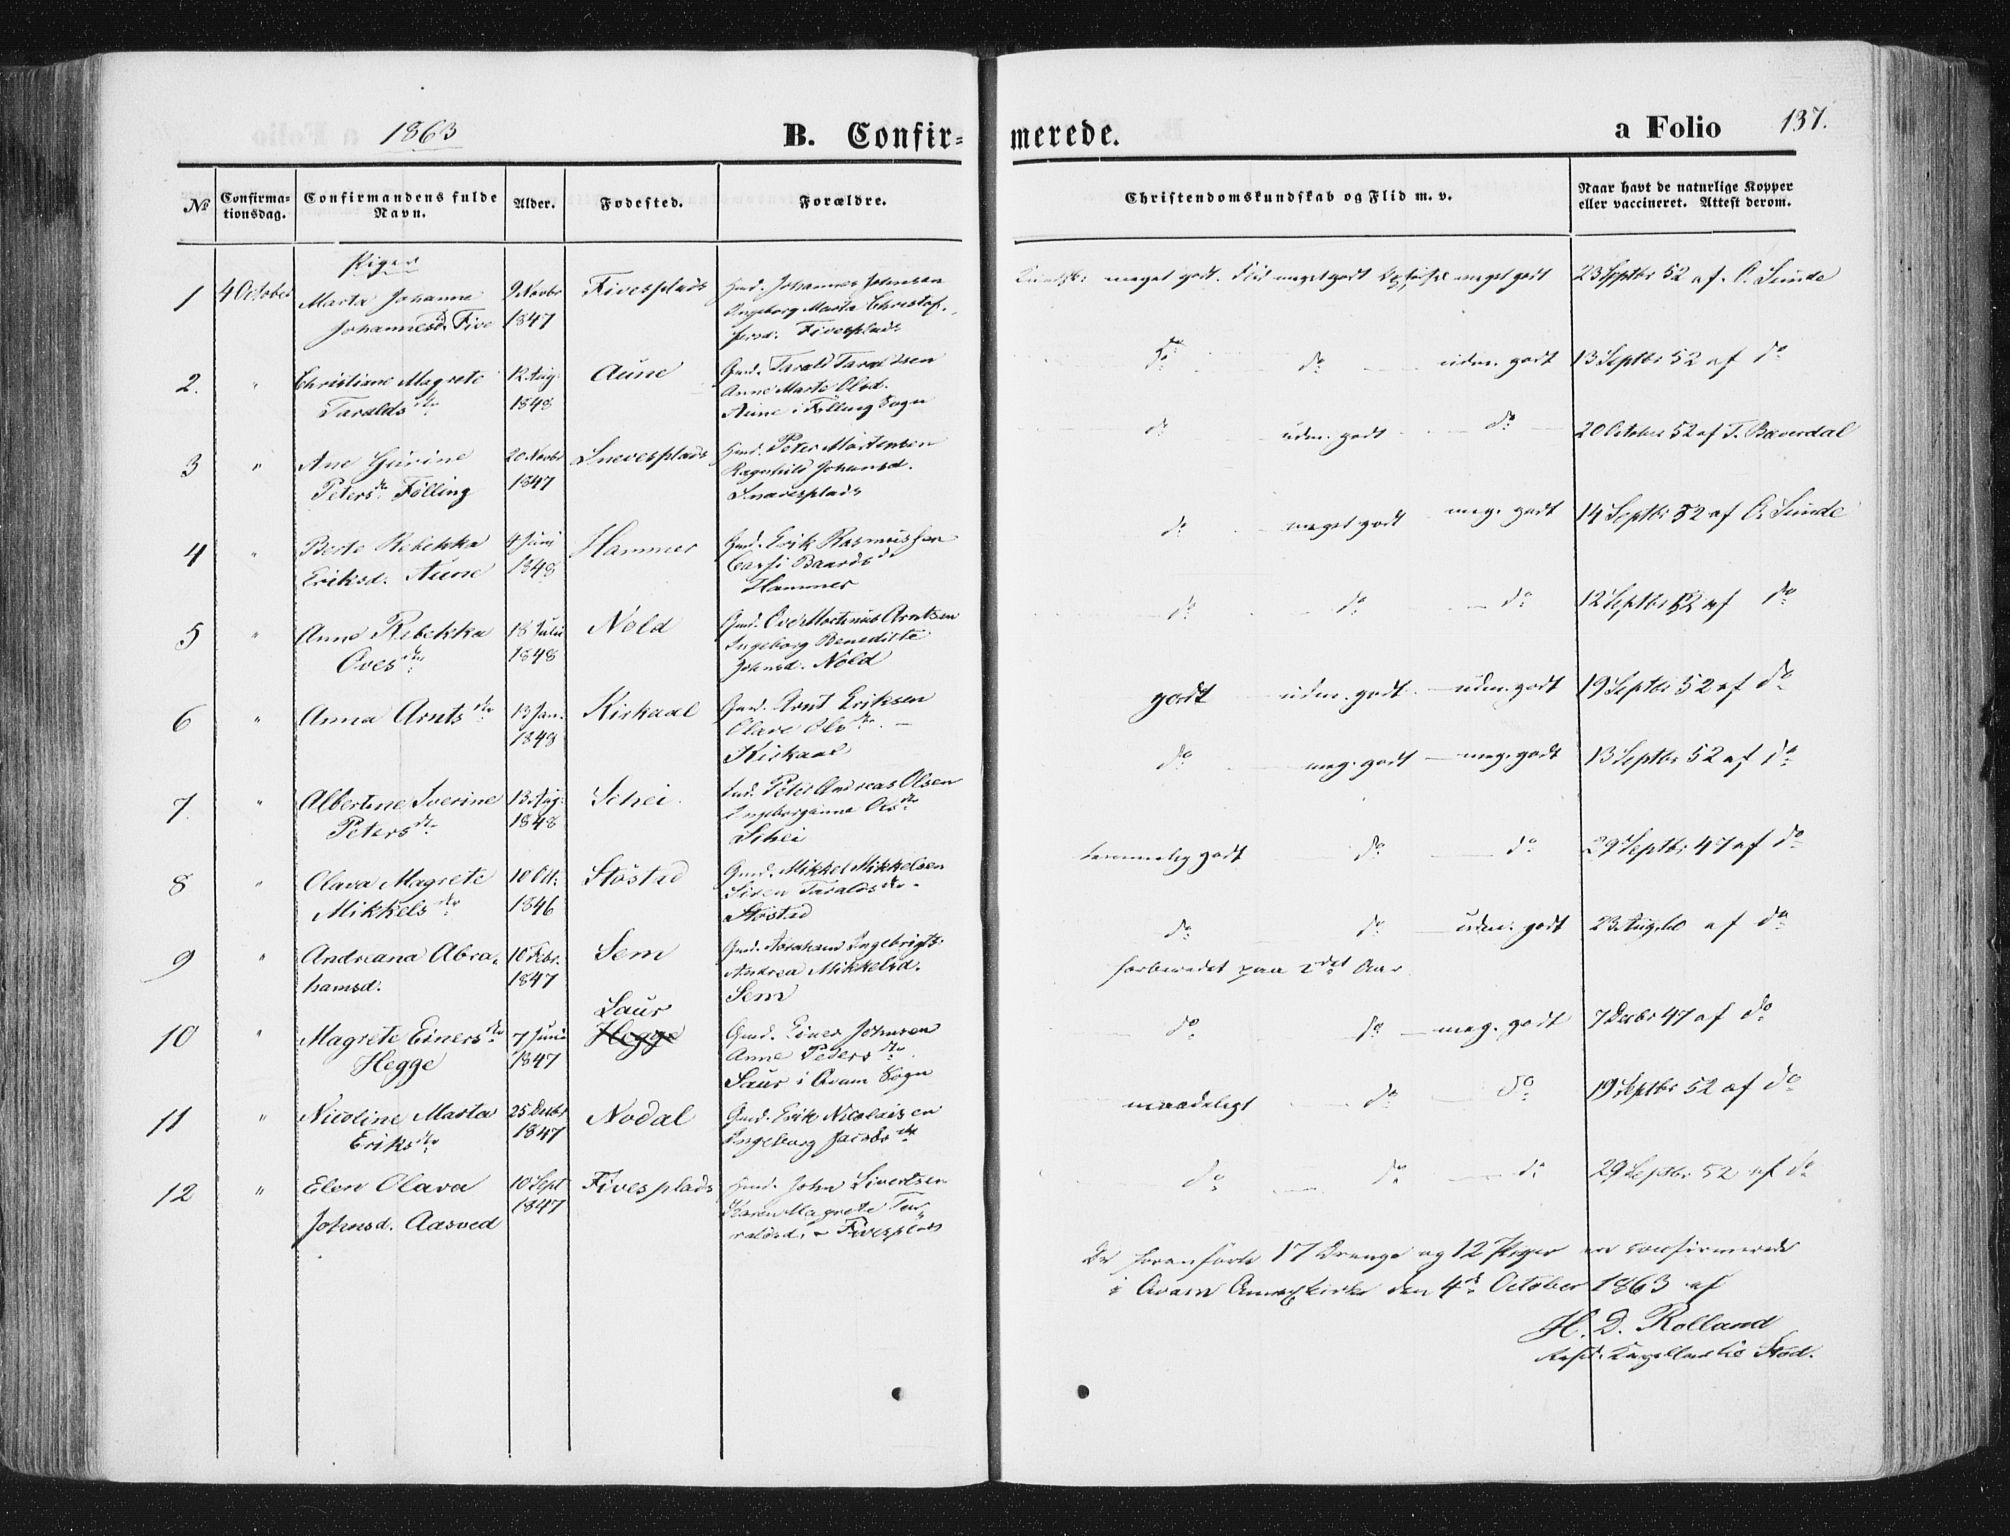 1863
B. Confir-
merede.
a Folio 137.
No
Confirma-
tionsdag.
Confirmandens fulde
Navn.
Alder.
Fødested.
Forældre.
Christendomskundskab og Flid m. v.
Naar havt de naturlige Kopper
eller vaccineret. Attest derom.
Piger
1 4 October Marta Johanna 9 Novbr Fivesplads Johannes Johnsen meget godt. Flid meget godt meget godt 23 Septbr 52 af O. Sunde
Johannesd. Five 1847 Ingeborg Marta Christof-
fersd. Fivesplads
2. " Christiane Magrete 12 Aug Aune Gmd. Tarald Taraldsen do do udm. godt 13 Septbr 52 af do
Taraldsdtr 1848 Anne Marta Olsd.
Aune i Følling Sogn
3 " Ane Gurine 20 Novbr Snevesplads Peter Mortensen do udm. godt do 20 October 52 af T. Baverdal
Petersdtr Følling 1847 Ragnhild Johansd.
Snavesplads
4 " Berte Rebekka 4 Juni Hammer Gmd. Erik Rasmussen do meget godt meg. godt 14 Septbr 52 af O. Sunde
Eriksd. Aune 1848 Baardsdtr
Hammer
5 " Anne Rebekka 18 Juli Nøld Gmd. Ove Martinus Arntsen do do do 12 Septbr 52 af do
Ovesdtr 1848 Ingeborg Benedikte
Johnsd. Nøld
6 " Anna Arntsdtr 13 Jan. Kirkaal Gmd. Arnt Eriksen godt udm. godt udm. godt 19 Septbr 52 af do
1848 Olava Olsdtr
Kirkaal
7. " Albertine Iverine 13 Aug. Schei Peter Andreas Olsen do meg. godt meg. godt 13 Septbr 52 af do
Petersdtr 1848 Ingeborganna Olsdtr
Schei
8 " Olava Magrete 10 Oct. Støstad Gmd. Mikkel Mikkelsen temmelig godt do do 29 Septbr 47 af do
Mikkelsdtr 1846 Siren Taraldsdtr
Støstad
9 " Andreana Abra- 10 Febr. Sem Gmd. Abraham Ingebrigts. do do udm. godt 23 Aug. 60 af do
hamsd. 1847 Andrea Mikkelsd. forberedet paa 2det Aar
Sem
Saur
10 " Magrete Einersdtr 7 Juni Hegge Gmd. Einer Johnsen do do meg. godt 7 Decbr 47 af do
Hegge 1847 Anne Pedersdtr
Saur i Qvam Sogn
11 " Nicoline Marta 25 Decbr Nodal Gmd. Erik Nicolaisen maadeligt do do 19 Septbr 52 af do
Eriksdtr 1847 Ingeborg Jacobsdtr
12 " Elen Olava 10 Sept Fivesplads John Sivertsen do do do 29 Septbr 52 af do
Johnsd. Aasved 1847 Karen Magrete Ta-
raldsd. Fivesplads
De foranførte 17 Drenge og 12 Piger ere confirmerede
i Qvam Annexkirke den 4de October 1863 af
H. D. Rolland
Resid. Capellan til Stod.